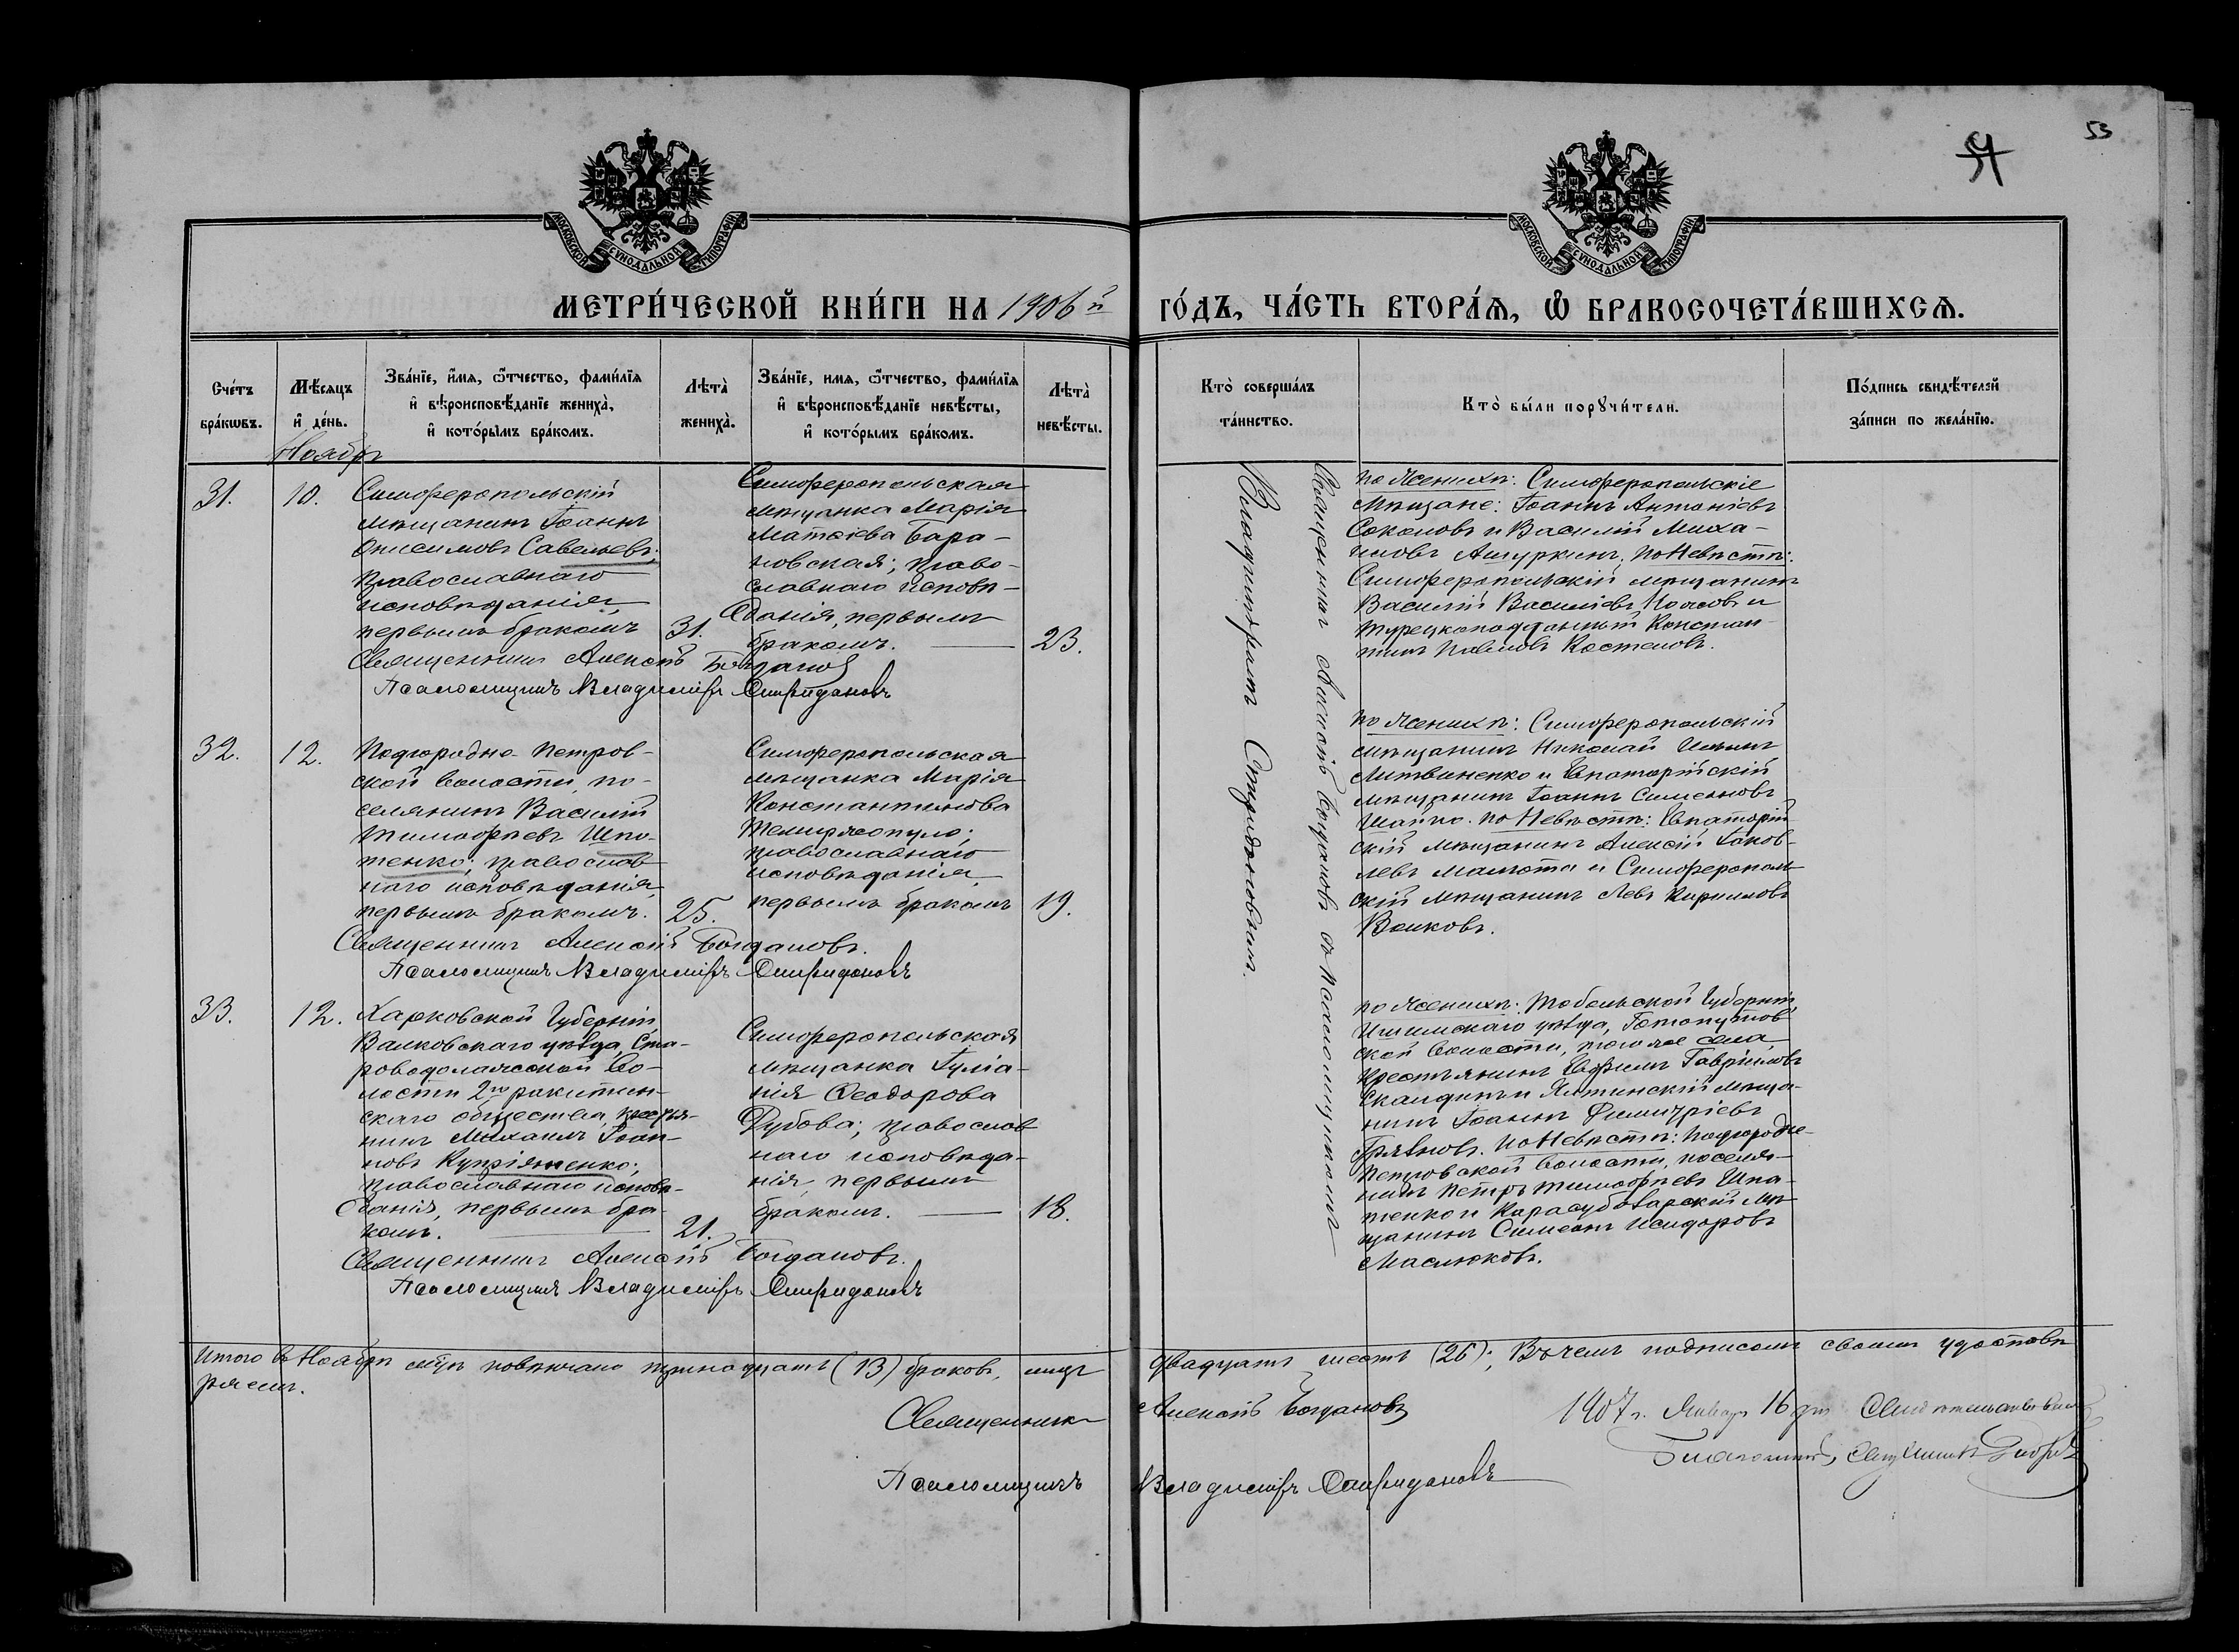 53
МОСКОВСКОЙ СѴНОДАЛЬНОЙ ТИПОГРАФІИ
МОСКОВСКОЙ СѴНОДАЛЬНОЙ ТИПОГРАФІИ
МЕТРИ́ЧЕСКОЙ КНИ́ГИ НА 1906й ГО́ДЪ, ЧА́СТЬ ВТОРА́Я, Ѽ БРАКОСОЧЕТА́ВШИХСЯ.
Счетъ бракѡвъ.
Мѣсяцъ и день.
Званіе, имя, ѿчество, фамилія и вѣроисповѣданіе жениха, и которымъ бракомъ.
Лѣта жениха.
Званіе, имя, ѿчество, фамилія и вѣроисповѣданіе невѣсты, и которымъ бракомъ.
Лѣта невѣсты.
Кто совершалъ таинство.
Кто были порꙋчители.
Подпись свидѣтелей записи по желанію.
Ноябрь
31.
10.
Симферопольскій
мѣщанинъ Іоаннъ
Онисимовъ Савельевъ;
православнаго
исповѣданія,
первымъ бракомъ
31.
Симферопольская
мѣщанка Марія
Матѳіева Бара-
новская; право-
славнаго исповѣ-
данія, первымъ
бракомъ.
23.
Священникъ Алексій Богдановъ
Псаломщикъ Владиміръ Спиридоновъ
по Женихѣ: Симферопольскіе
мѣщане: Іоаннъ Антоніевъ
Соколовъ и Василій Миха-
иловъ Ашуркинъ, по Невѣстѣ:
Симферопольскій мѣщанинъ
Василій Василіевъ Носовъ и
турецкоподданный Констан-
тинъ Павловъ Костеловъ.
32.
12.
Подгородне-Петров-
ской волости, по-
селянинъ Василій
Тимоѳеевъ Шпо-
тенко; православ-
наго исповѣданія,
первымъ бракомъ.
25.
Симферопольская
мѣщанка Марія
Константинова
Темиржопуло;
православнаго
исповѣданія,
первымъ бракомъ
19.
Священникъ Алексій Богдановъ.
Псаломщикъ Владиміръ Спиридоновъ
по Женихѣ: Симферопольскій
мѣщанинъ Николай Ильинъ
Литвиненко и Евпаторійскій
мѣщанинъ Іоаннъ Симеоновъ
Шапко. по Невѣстѣ: Евпаторій-
скій мѣщанинъ Алексій Іаков-
левъ Малюта и Симферополь-
скій мѣщанинъ Левъ Кирилловъ
Волковъ.
33.
12.
Харковской Губерніи,
Валковскаго уѣзда, Ста-
роводолажской Во-
лости 2го ракитян-
скаго общества, крестья-
нинъ Михаилъ Іоан-
новъ Купріяненко;
православнаго исповѣ-
данія, первымъ бра-
комъ.
21.
Симферопольская
мѣщанка Іуліа-
нія Ѳеодорова
Дубова; православ-
наго исповѣда-
нія, первымъ
бракомъ.
18.
Священникъ Алексій Богдановъ.
Псаломщикъ Владиміръ Спиридоновъ
по Женихѣ: Тобольской Губерніи,
Ишимскаго уѣзда, Готопутов-
ской волости, того же села,
крестьянинъ Ефремъ Гавріиловъ
и Ялтинскій мѣща-
нинъ Іоаннъ Димитріевъ
Грязновъ. по Невѣстѣ: Подгородне-
Петровской волости, поселя-
нинъ Петръ Тимоѳеевъ Шпо-
тенко и Карасубазарскій мѣ-
щанинъ Симеонъ Исидоровъ
Маслюковъ.
Священникъ Алексій Богдановъ съ псаломщикомъ
Владиміромъ Спиридоновымъ.
Итого въ Ноябрѣ мѣсяцѣ повѣнчано тринадцать (13) браковъ, лицъ двадцать шесть (26); Въ чемъ подписомъ своимъ удостовѣ-
ряемъ.
Священникъ Алексій Богдановъ
Псаломщикъ Владиміръ Спиридоновъ
1907 г. Января 16 дня Свидѣтельствовалъ
Благочинный, Священникъ